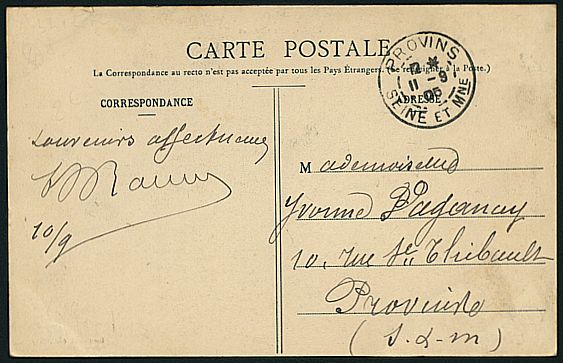 CARTE POSTALE
(La Correspondance au recto n'est pas acceptée par tous les Pays Étrangers. (Se renseigner à la Poste.)
CORRESPONDANCE
ADRESSE
PROVINS
12 *
11 - 9
05
SEINE ET MNE
souvenirs affectueux
10/9
Mademoiselle
Yvonne Paganay
10, rue St. Thibault
Provins
(S.-&-M)